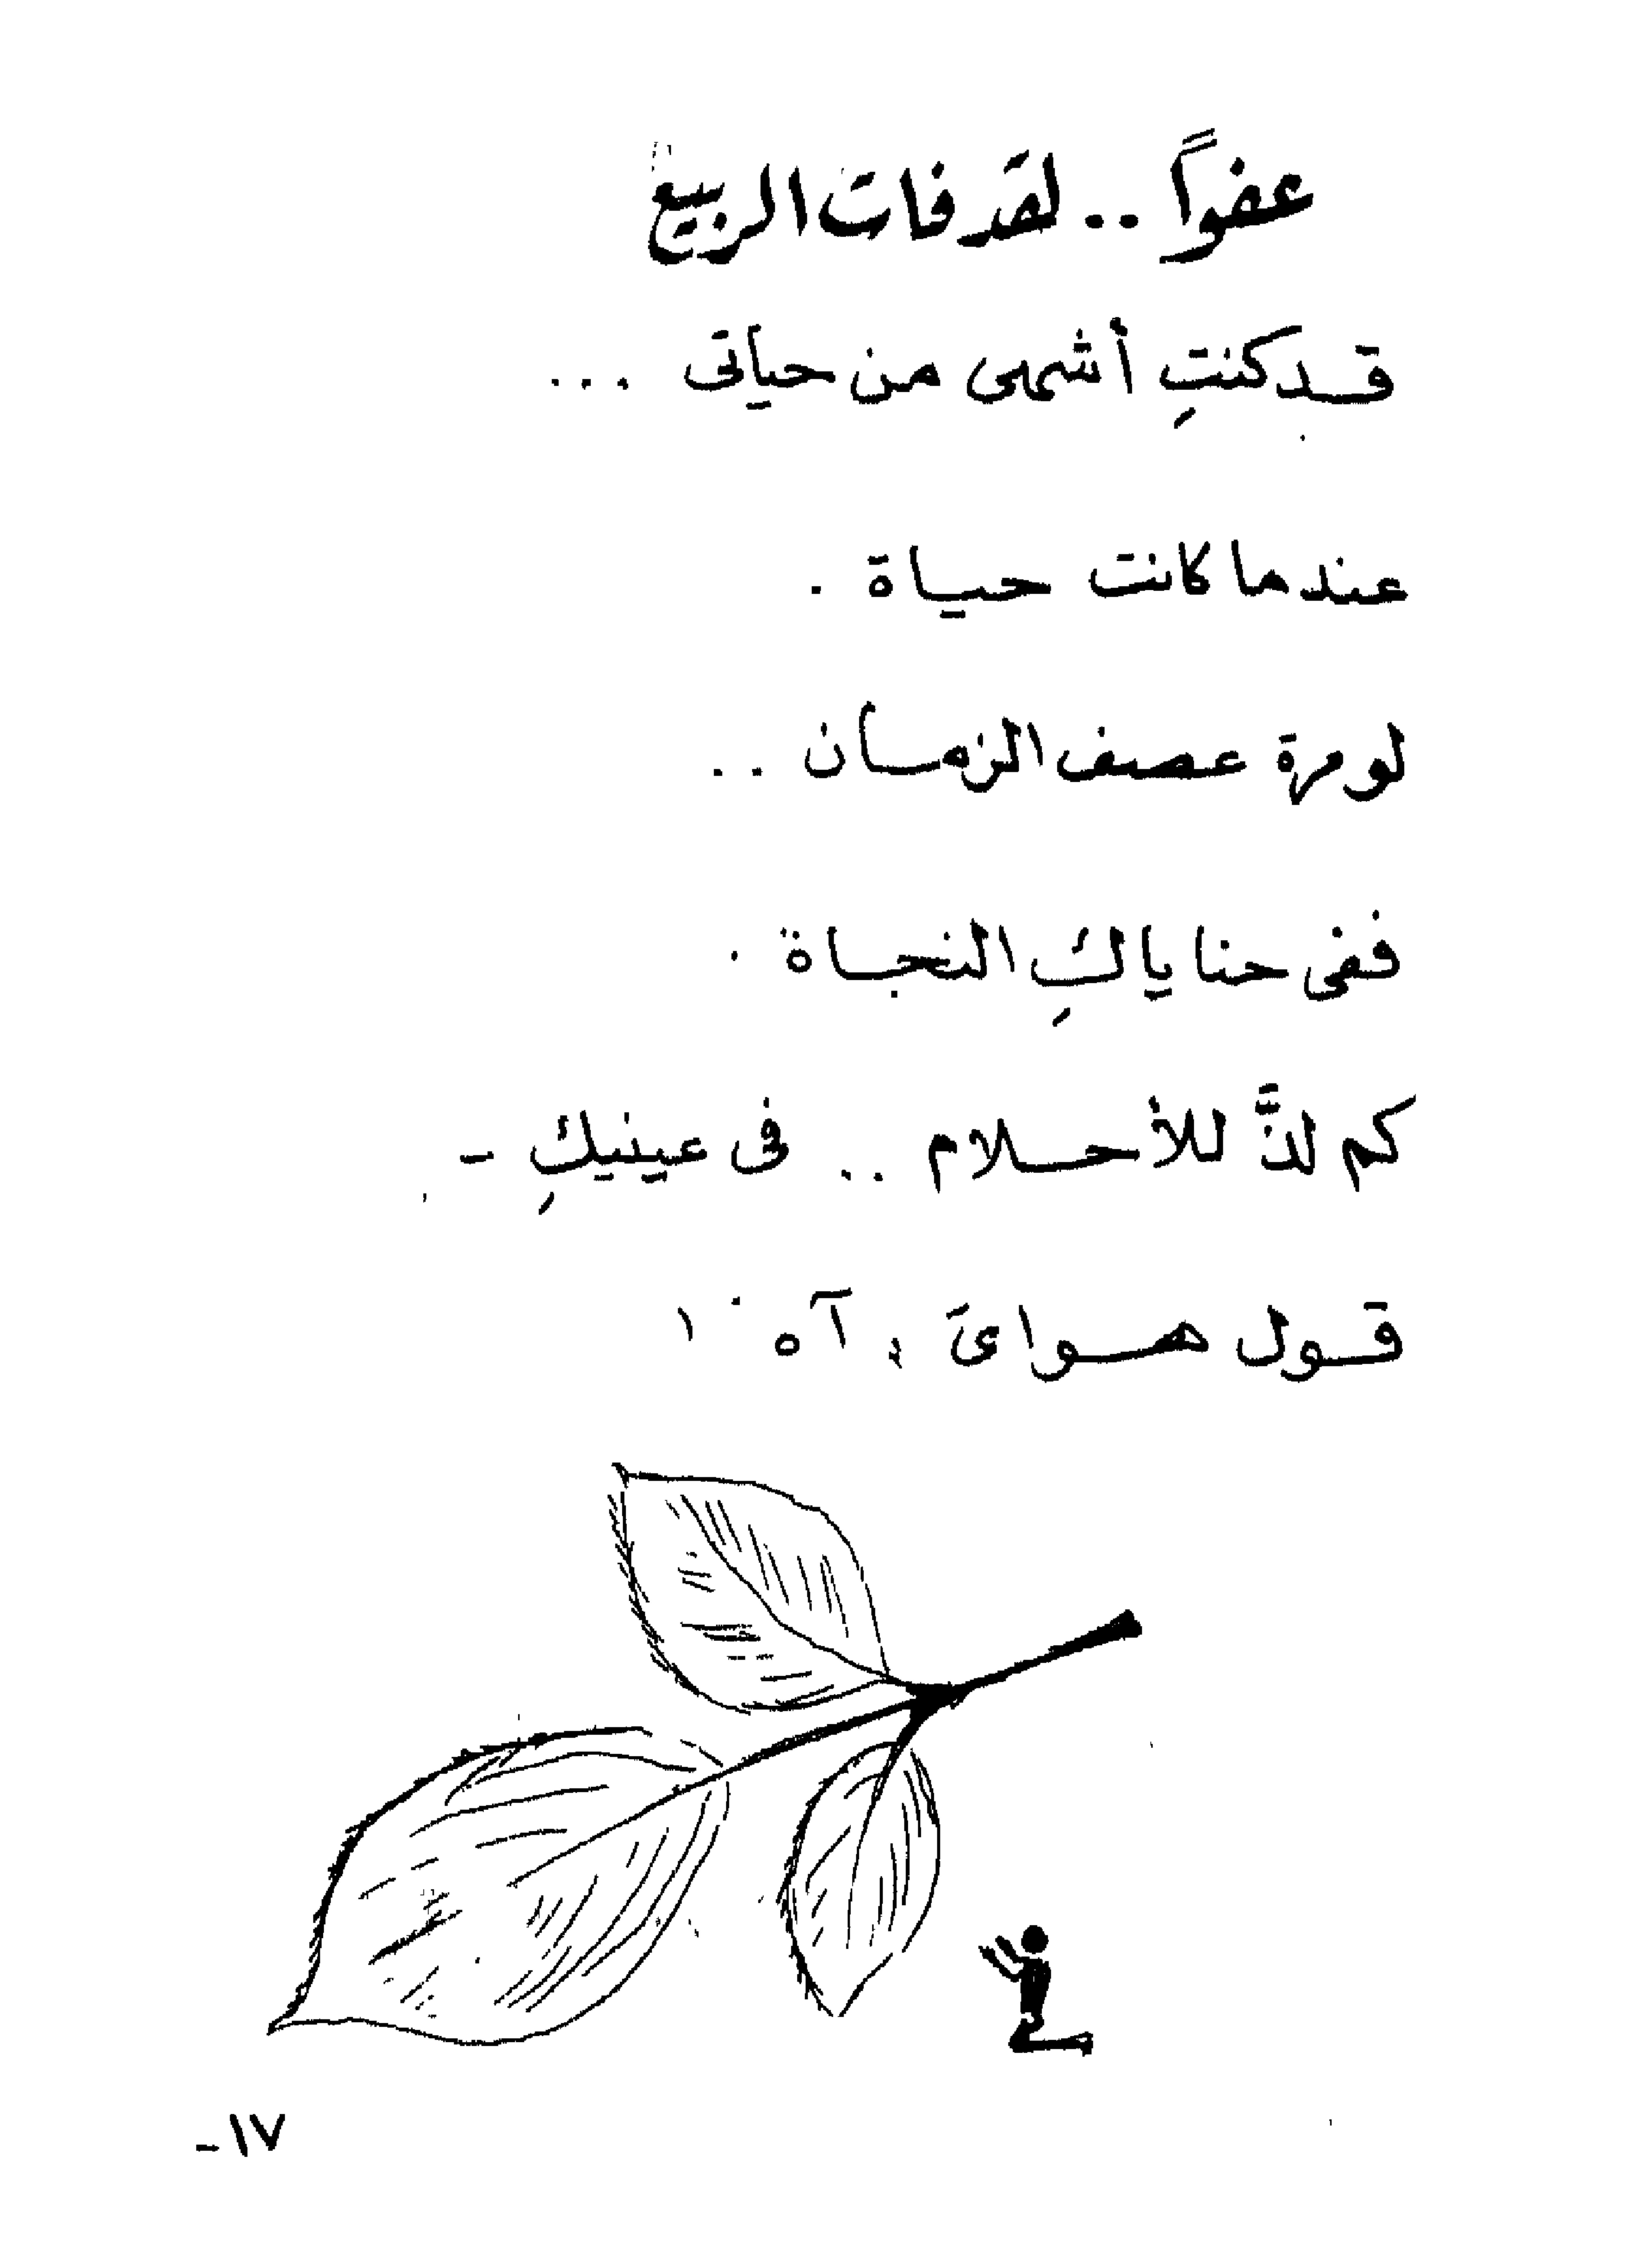 عفواً .. لقد فات الربيع
قد كنتِ أشهى من حياتى ...
عندما كانت حياة .
لو مرة عصف الزمان ..
ففى حناياكِ النجاة .
كم لذَّ للأحلام .. فى عينيكِ -
قول هواىَ : آه !
١٧-